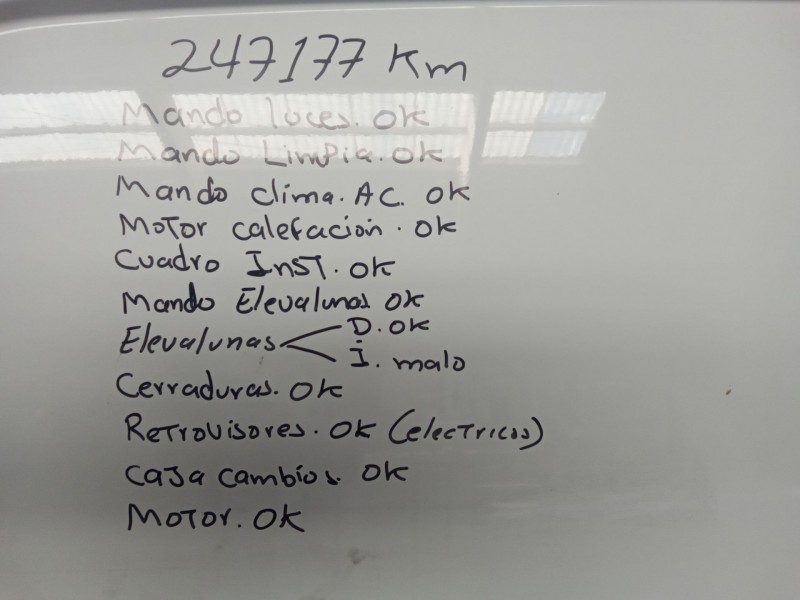 247177 Km
Mando luces. OK
Mando Limpia. OK
Mando clima. AC. OK
Motor calefacion. OK
Cuadro Inst. OK
Mando Elevalunas OK
Elevalunas D. OK
I. malo
Cerraduras. OK
Retrovisores. OK (electricos)
Caja cambios. OK
Motor. OK